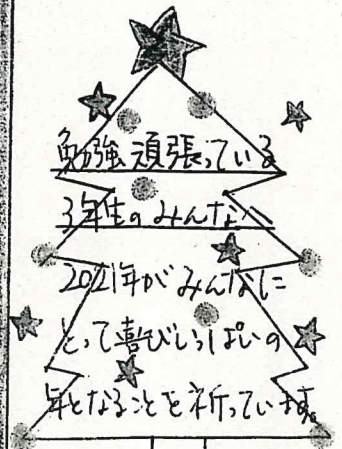 勉強頑張っている
3年生のみんなへ
2021年がみんなに
とって喜びいっぱいの
年となることを祈っています。